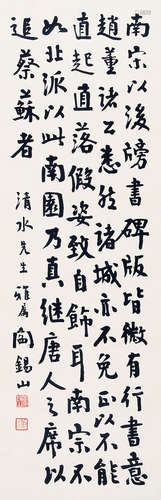 南宗以后牓書碑版皆微有行書意
趙董诸公悉然诸城亦不免正以不能
直起直落假姿致自飾耳南宗不
如北派以此南園乃真继唐人之席以
追蔡蘇者
清水先生雅属 阎錫山